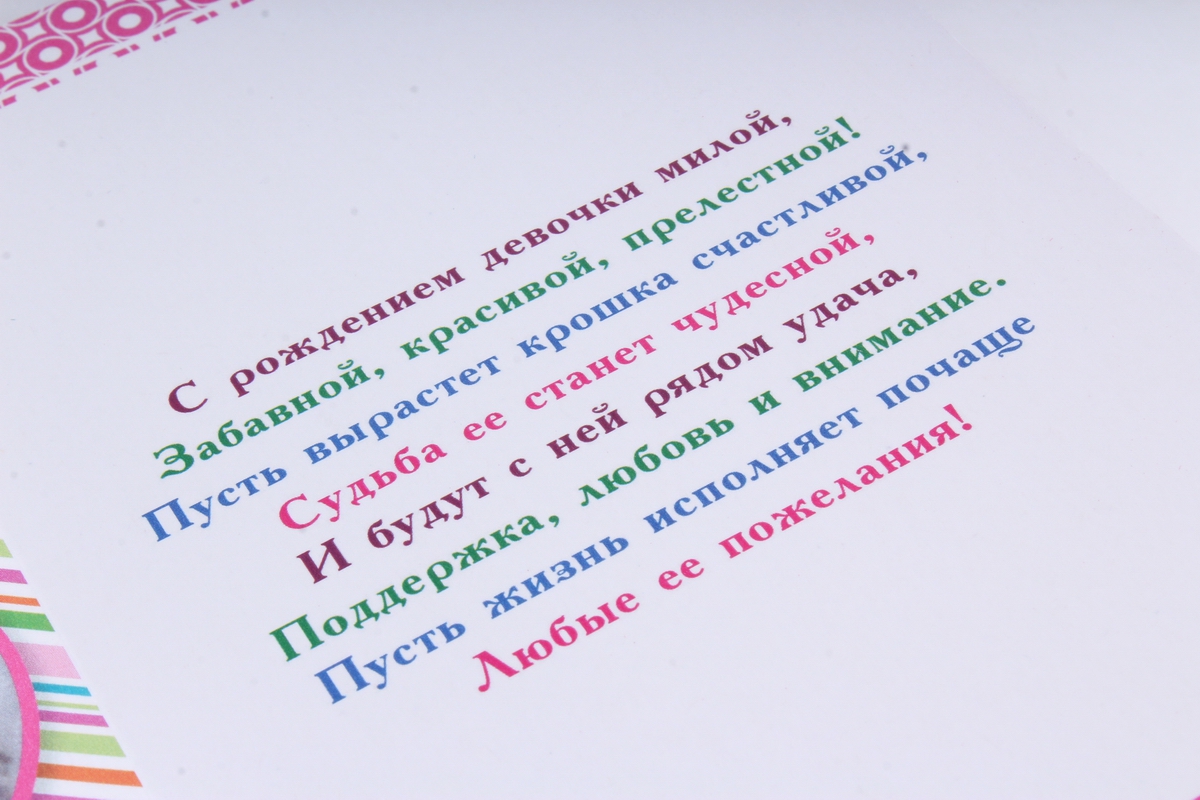 С рождением девочки милой,
Забавной, красивой, прелестной!
Пусть вырастет крошка счастливой,
Судьба ее станет чудесной,
И будут с ней рядом удача,
Поддержка, любовь и внимание.
Пусть жизнь исполняет почаще
Любые ее пожелания!